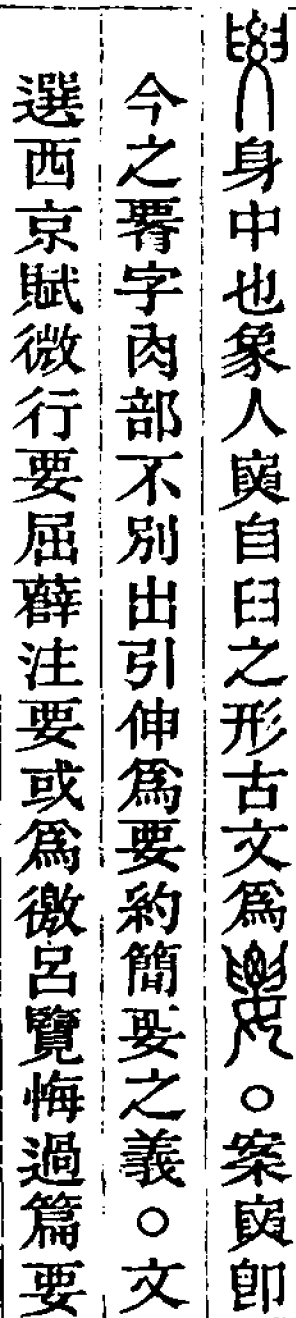 身中也象人自臼之形古文爲○案即
今之字肉部不別出引伸爲要約簡要之義○文
選西京賦微行要屈薛注要或爲徼呂覽悔過篇要